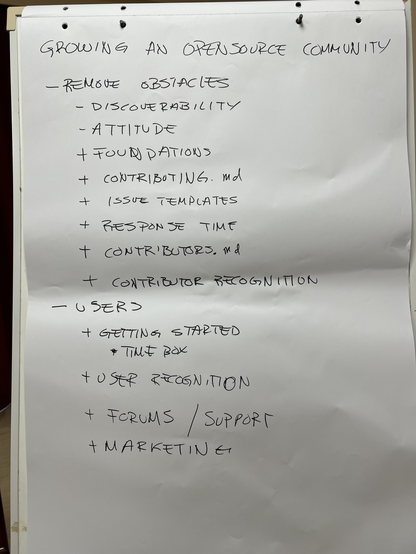 GROWING AN OPENSOURCE COMMUNITY
- REMOVE OBSTACLES
- DISCOVERABILITY
- ATTITUDE
+ FOUNDATIONS
+ CONTRIBUTING.md
+ ISSUE TEMPLATES
+ RESPONSE TIME
+ CONTRIBUTORS.md
+ CONTRIBUTOR RECOGNITION
- USERS
+ GETTING STARTED
* TIME BOX
+ USER RECOGNITION
+ FORUMS / SUPPORT
+ MARKETING